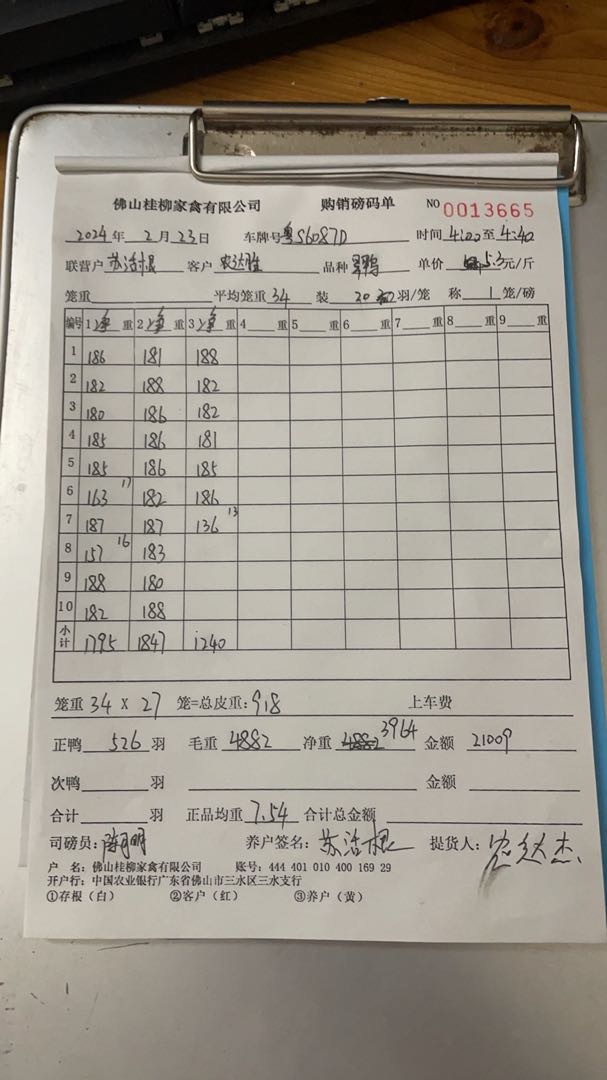 佛山桂柳家禽有限公司 购销磅码单 NO 0013665
2024年 2月 23日 车牌号 粤S6087D 时间 4:20至 4:40
联营户 苏活根 客户 农达胜 品种 鸭 单价 5.3元/斤
笼重 平均笼重 34 装 20 羽/笼 称 1 笼/磅
编号 1净重 2净重 3净重 4 重 5 重 6 重 7 重 8 重 9 重
1 186 181 188
2 182 188 182
3 180 186 182
4 185 186 181
5 185 186 185
6 163 17 182 186
7 187 187 136 13
8 157 16 183
9 188 180
10 182 188
小计 1795 1847 1240
笼重 34 x 27 笼=总皮重: 918 上车费
正鸭 526 羽 毛重 4882 净重 4882 3964 金额 21009
次鸭 羽 金额
合计 羽 正品均重 7.54 合计总金额
司磅员: 养户签名: 苏活根 提货人:
户 名: 佛山桂柳家禽有限公司 账号: 444 401 010 400 169 29
开户行: 中国农业银行广东省佛山市三水区三水支行
①存根（白） ②客户（红） ③养户（黄）